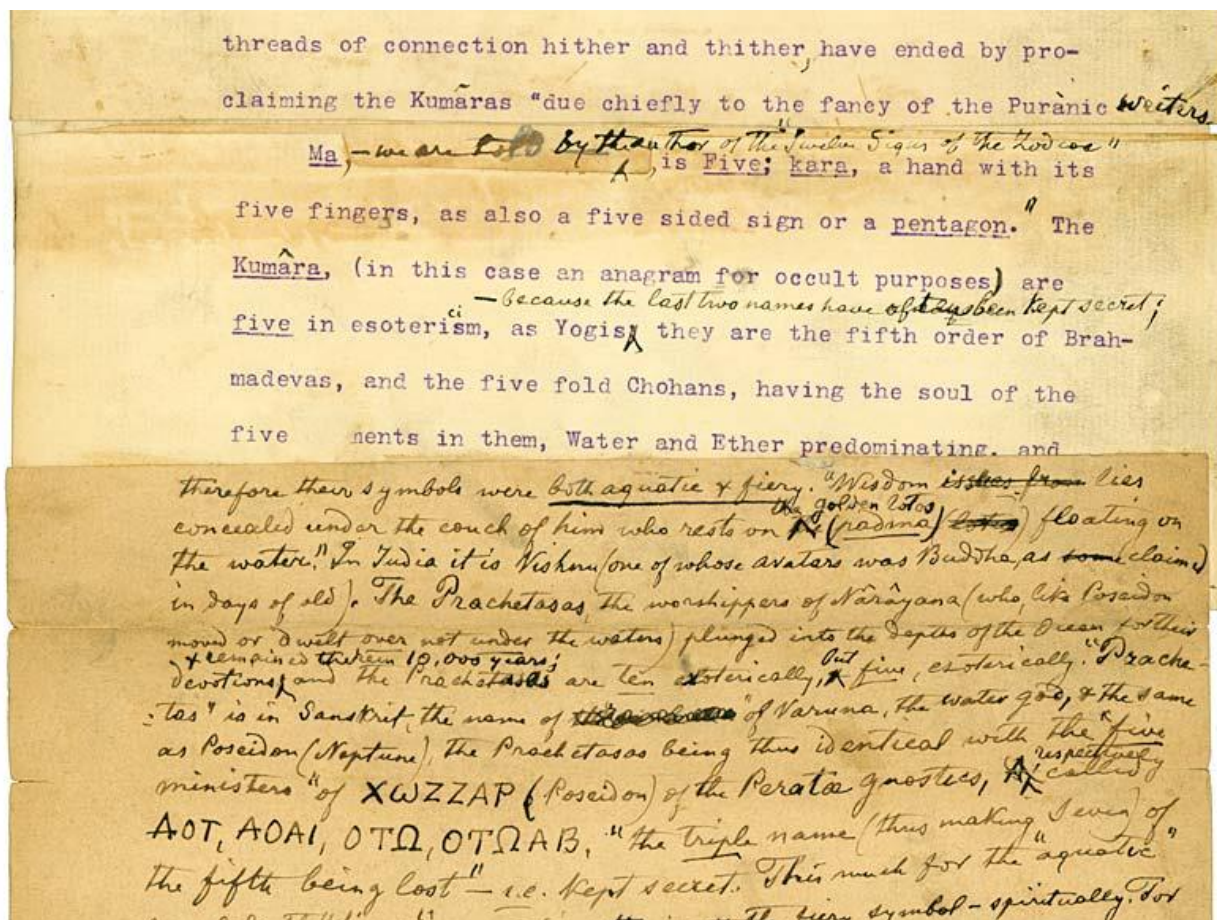 threads of connection hither and thither, have ended by pro-
claiming the Kumāras "due chiefly to the fancy of the Purànic writers
Ma, - we are told by the author of the "Twelve Signs of the Zodiac"
, is Five; kara, a hand with its
five fingers, as also a five sided sign or a pentagon." The
Kumâra, (in this case an anagram for occult purposes) are
- because the last two names have always been kept secret;
five in esotericism, as Yogis, they are the fifth order of Brah-
madevas, and the five fold Chohans, having the soul of the
five ments in them, Water and Ether predominating, and
therefore their symbols were both aquatic & fiery. "Wisdom issues from lies
the golden lotos
concealed under the couch of him who rests on (padma) lotus) floating on
the water." In India it is Vishnu (one of whose avatars was Buddha, as some claimed
in days of old). The Prachetasas, the worshippers of Nârâyana (who, like Poseidon
moved or dwelt over not under the waters) plunged into the depths of the Ocean for their
& remained therein 10,000 years;
devotions, and the Prachetasas are ten exoterically, but five, esoterically. "Prache-
tas" is in Sanskrit, the name of of Varuna, the water god, & the same
as Poseidon (Neptune), the Prachetasas being thus identical with the "five
respectively
ministers" of ΧΩΖΖΑΡ (Poseidon) of the Peratæ gnostics, called
ΑΟΤ, ΑΟΑΙ, ΟΤΩ, ΟΤΩΑΒ, "the triple name (thus making seven) of
the fifth being lost" - i.e. kept secret. This much for the "aquatic"
fiery symbol - spiritually. For